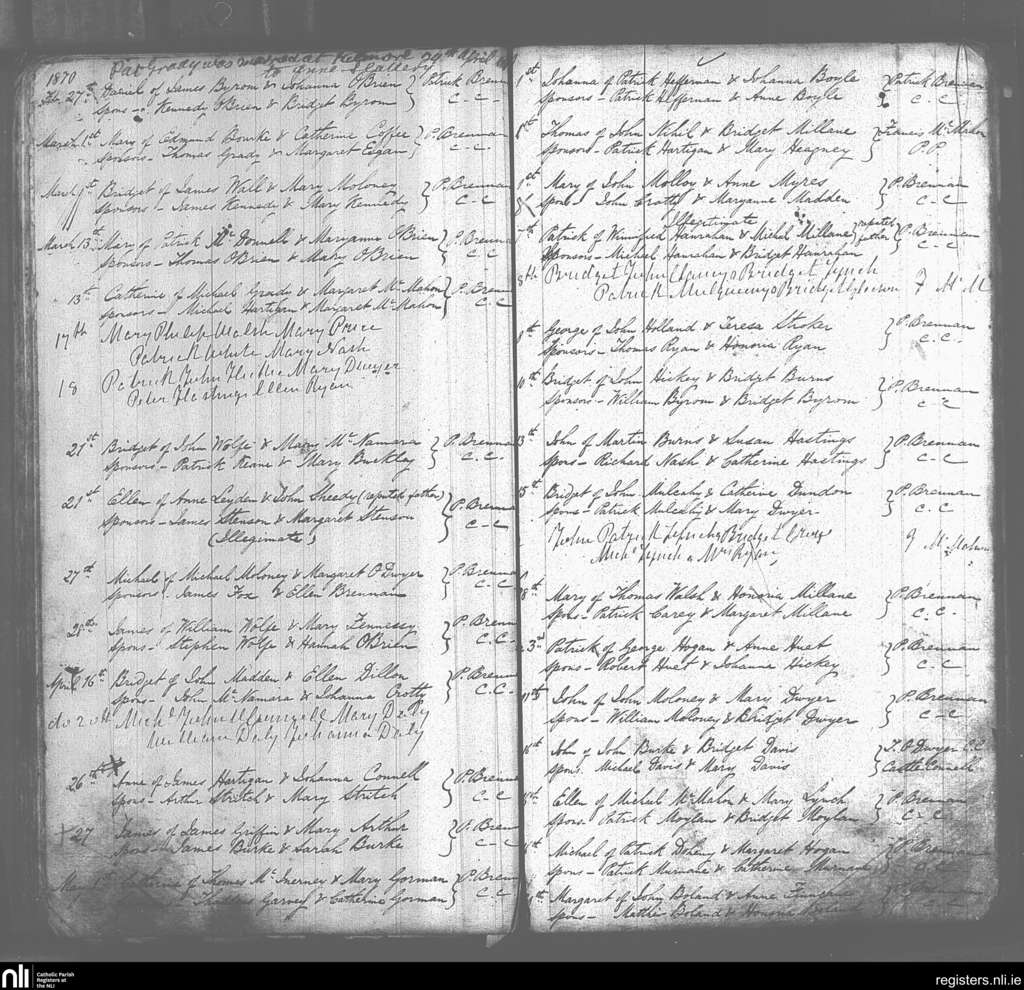 1870
Pat Grady was married at 29th April
to Anne
Feb 27th Daniel of James Byrom & Johanna O'Brien } Patrick Brenn
Spons - Kennedy O'Brien & Bridget Byrom C-C-
March 1st Mary of Edmund Bourke & Catherine Coffee } P. Brennan
Sponsors - Thomas Grady & Margaret Egan C-C-
March 9th Bridget of James Wall & Mary Moloney } P. Brennan
Sponsors - James Kennedy & Mary Kennedy C-C
March 13th Mary of Patrick McDonnell & Maryanne O'Brien } P. Brenna
Sponsors - Thomas O'Brien & Mary O'Brien C-C
13th Catherine of Michael Grady & Margaret McMahon } P. Bren
Sponsors - Michael Hartigan & Margaret McMahon C.C
17th Mary Philip Walsh Mary Price
Patrick White Mary Nash
18 Patrick John Mary Dwyer
Peter Hastings Ellen Ryan
21st Bridget of John Wolfe & Mary McNamara } P. Brenna
Sponsors - Patrick Keane & Mary Buckley C.C.
21st Ellen of Anne Leyden & John Sheedy (reputed father) } P. Brenna
Sponsors - James Stenson & Margaret Stenson C-C
(Illegimate)
27th Michael of Michael Moloney & Margaret O'Dwyer } P. Brenna
Sponsors - James Fox & Ellen Brennan C.C
28th James of William Wolfe & Mary Fennessy } P. Brenn
Spons - Stephen Wolfe & Hannah O'Brien C.C.
April 16th Bridget of John Madden & Ellen Dillon } P. Brenn
Spons - John McNamara & Johanna Crotty C.C.
do 20th Mich John Mary Daly
William Daly Johanna Daly
26th Anne of James Hartigan & Johanna Connell } P. Brenn
Spons - Arthur Stritch & Mary Stritch C-C
27 James of James Griffin & Mary Arthur } P. Bren
Spons - James Burke & Sarah Burke C-C
May of Thomas McInerney & Mary Gorman } P. Bren
Garvey & Catherine Gorman C-C
1st Johanna of Patrick Heffernan & Johanna Boyle } Patrick Brennan
Sponsors - Patrick Heffernan & Anne Boyle C.C
Thomas of John Nihil & Bridget Millane } Francis McMahon
Sponsors - Patrick Hartigan & Mary Heagney P.P.
1st Mary of John Molloy & Anne Myres } P. Brennan
Spons - John & Maryanne Madden C-C
Illegitimate
Patrick of Winnifred Hanrahan & Michael Millane reputed father } P. Brennan
Sponsors - Michael Hanrahan & Bridget Hanrahan C-C
8th Bridget John Clancy Bridget Lynch
Patrick Mulqueeny Bridget F McM
George of John Holland & Teresa Stoker } P. Brennan
Sponsors - Thomas Ryan & Honoria Ryan C.C.
10th Bridget of John Hickey & Bridget Burns } P. Brennan
Sponsors - William Byrom & Bridget Byrom C-C
13th John of Martin Burns & Susan Hastings } P. Brennan
Spons - Richard Nash & Catherine Hastings C-C
15th Bridget of John Mulcahy & Catherine Dundon } P. Brennan
Spons - Patrick Mulcahy & Mary Dwyer C.C
John Patrick Bridget
Mich Lynch & Mrs Ryan F McMahon
18th Mary of Thomas Walsh & Honoria Millane } P. Brennan
Spons - Patrick Carey & Margaret Millane C.C.
3rd Patrick of George Hogan & Anne Huet } P. Brennan
Spons - Robert Huet & Johanna Hickey C.C
11th John of John Moloney & Mary Dwyer } P. Brennan
Spons - William Moloney & Bridget Dwyer C-C
John of John Burke & Bridget Davis } T. O'Dwyer C.C
Spons. Michael Davis & Mary Davis Castle Connell
Ellen of Michael McMahon & Mary Lynch } P. Brennan
Spons. Patrick Moylan & Bridget Moylan C-C
Michael of Patrick & Margaret Hogan
Spons - Patrick Murnane & Catherine Murnane
Margaret of John Boland & Anne
Spons - Mathew Boland & Honoria
nli
Catholic Parish
Registers at
the NLI
registers.nli.ie